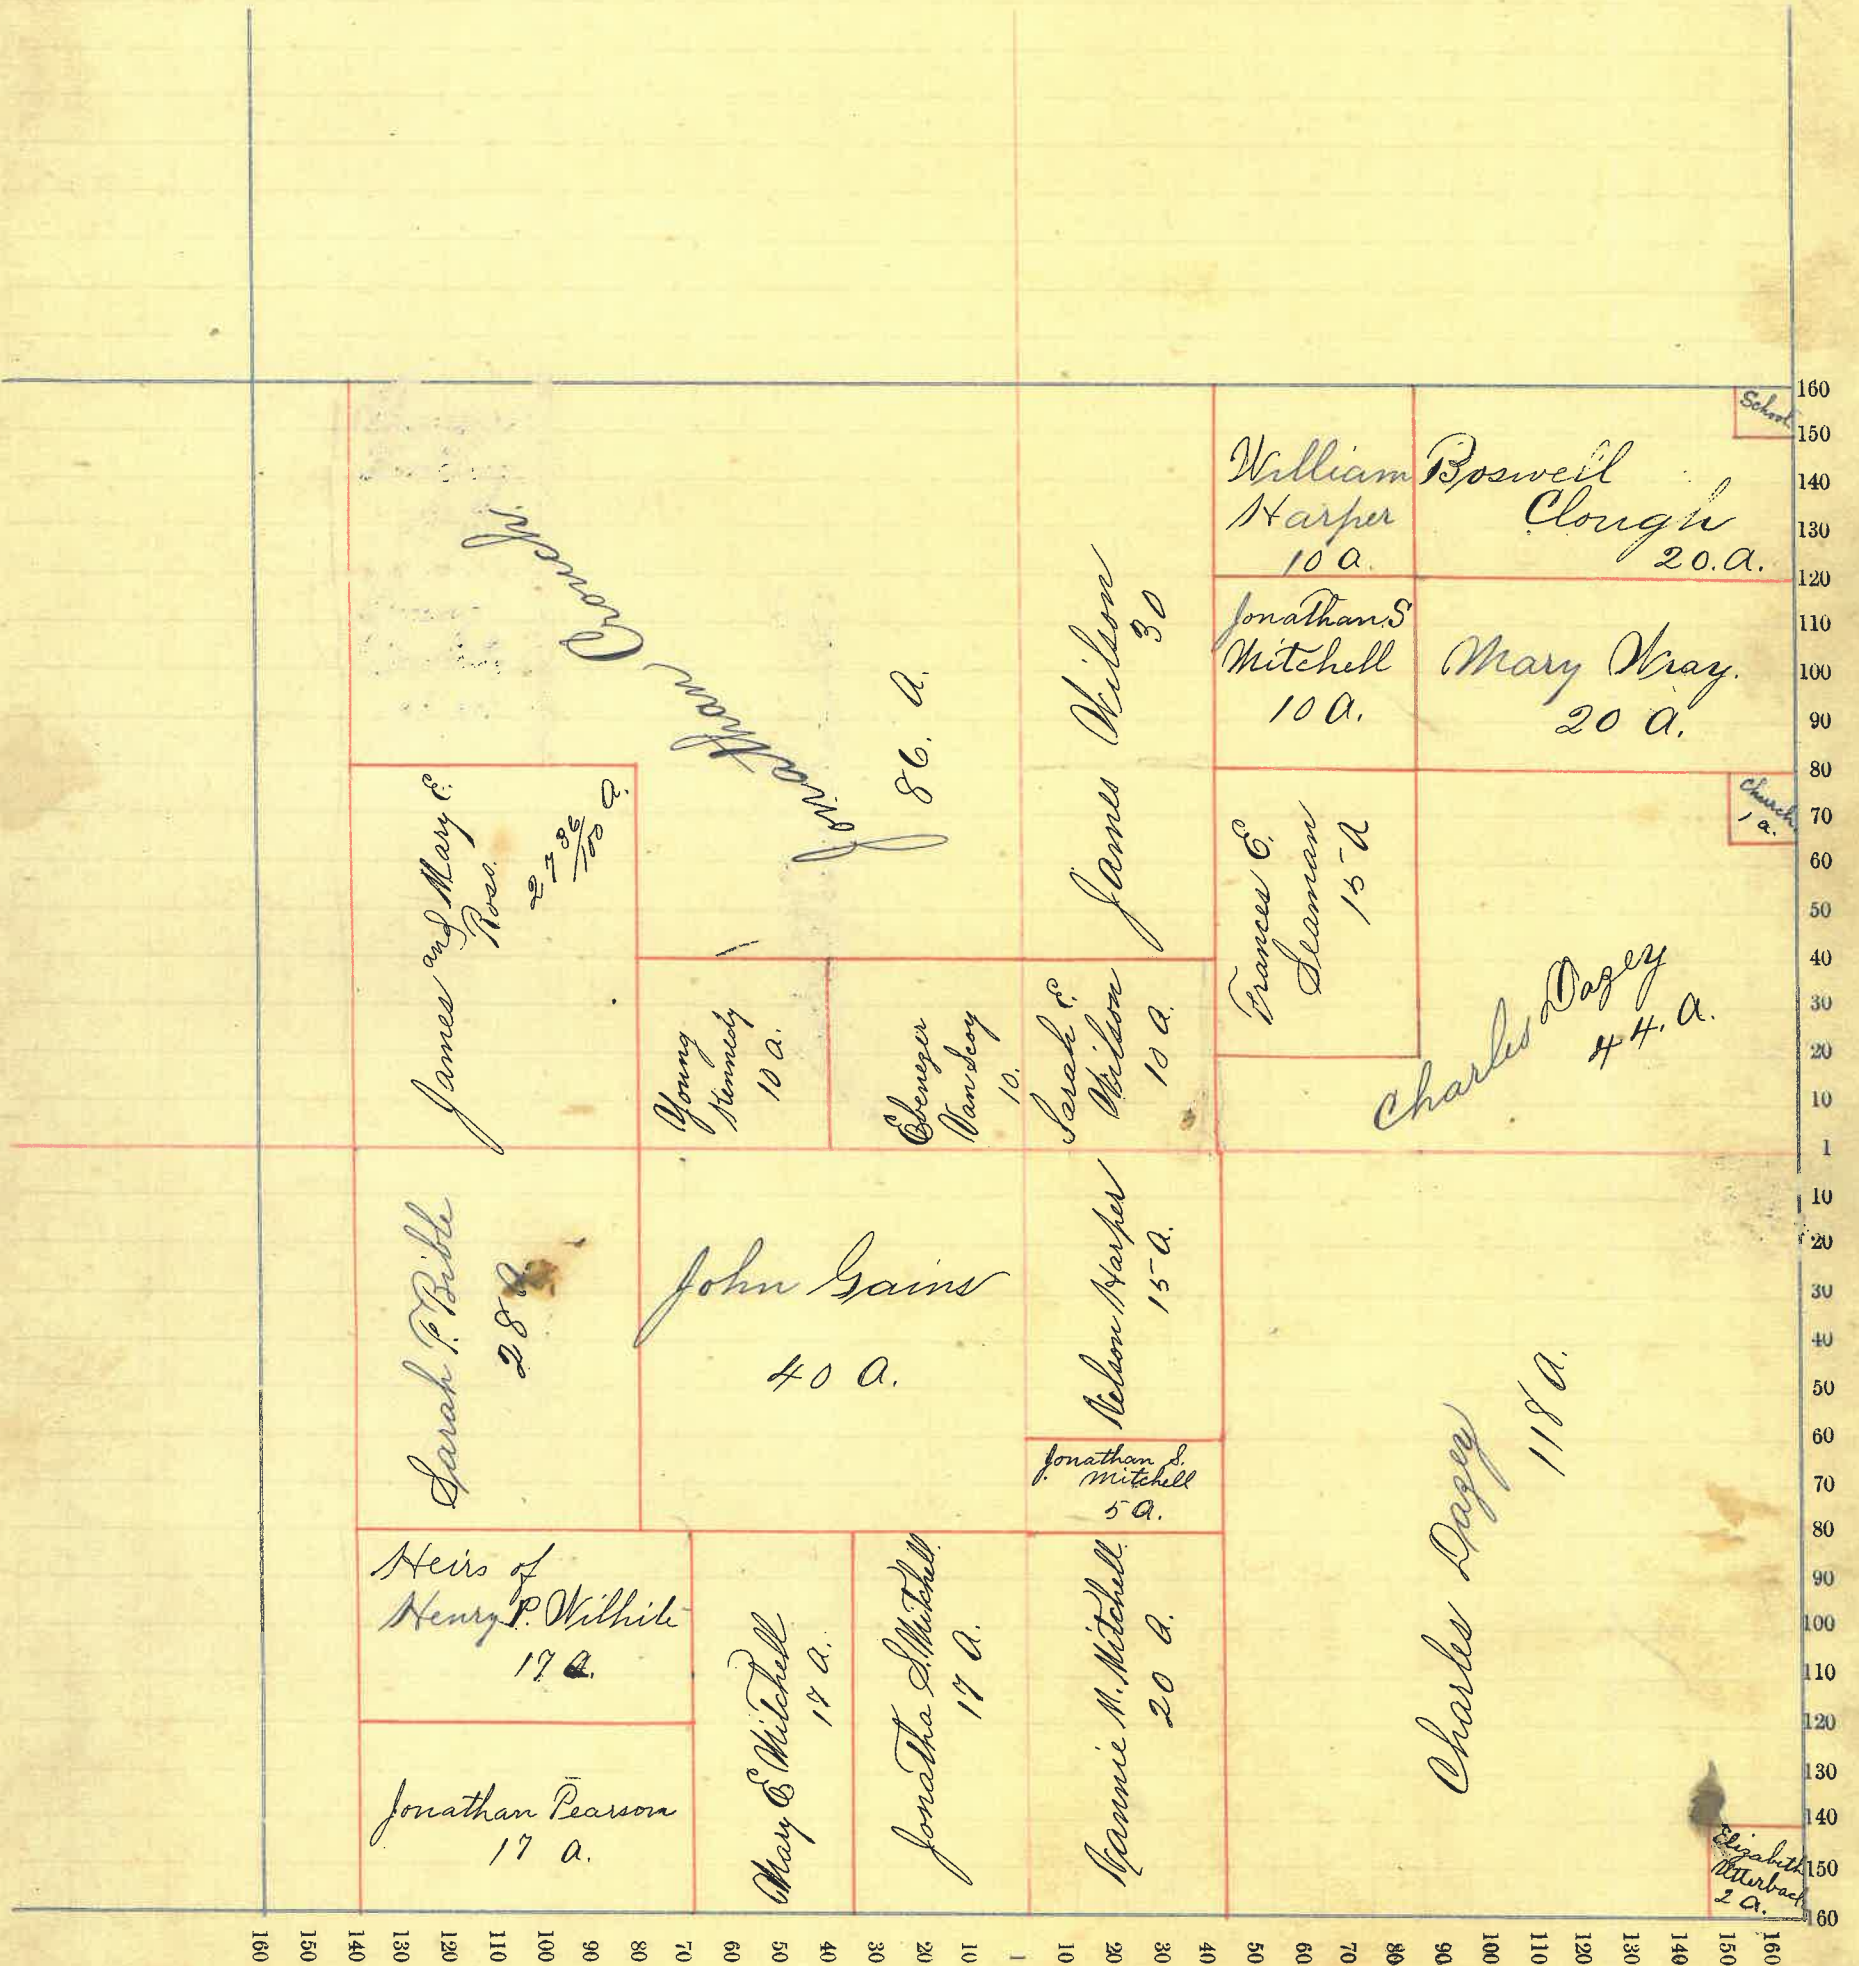 School
William
Harper
10 a.
Boswell
Clough
20. a.
Jonathan Crouch
86. a.
James Wilson
30
Jonathan S
Mitchell
10 a.
Mary Wray.
20 a.
James and Mary E.
Ross.
27 86/100 a.
Frances E.
Seaman
15 a
Church
1 a.
Charles Dazey
44. a.
Young
Kennedy
10 a.
Ebenezer
Van Scoy
10.
Sarah E.
Wilson
10 a.
Sarah P. Bible
28 a
John Gains
40 a.
Nelson Harper
15 a.
Jonathan S.
Mitchell
5 a.
Charles Dazey
118 a.
Heirs of
Henry P. Wilhite
17 a.
Mary E Mitchell
17 a.
Jonatha S. Mitchell
17 a.
Nannie M. Mitchell
20 a.
Jonathan Pearson
17 a.
Elizabeth
Utterback
2 a.
160
150
140
130
120
110
100
90
80
70
60
50
40
30
20
10
1
10
20
30
40
50
60
70
80
90
100
110
120
130
140
150
160
160 150 140 130 120 110 100 90 80 70 60 50 40 30 20 10 1 10 20 30 40 50 60 70 80 90 100 110 120 130 140 150 160